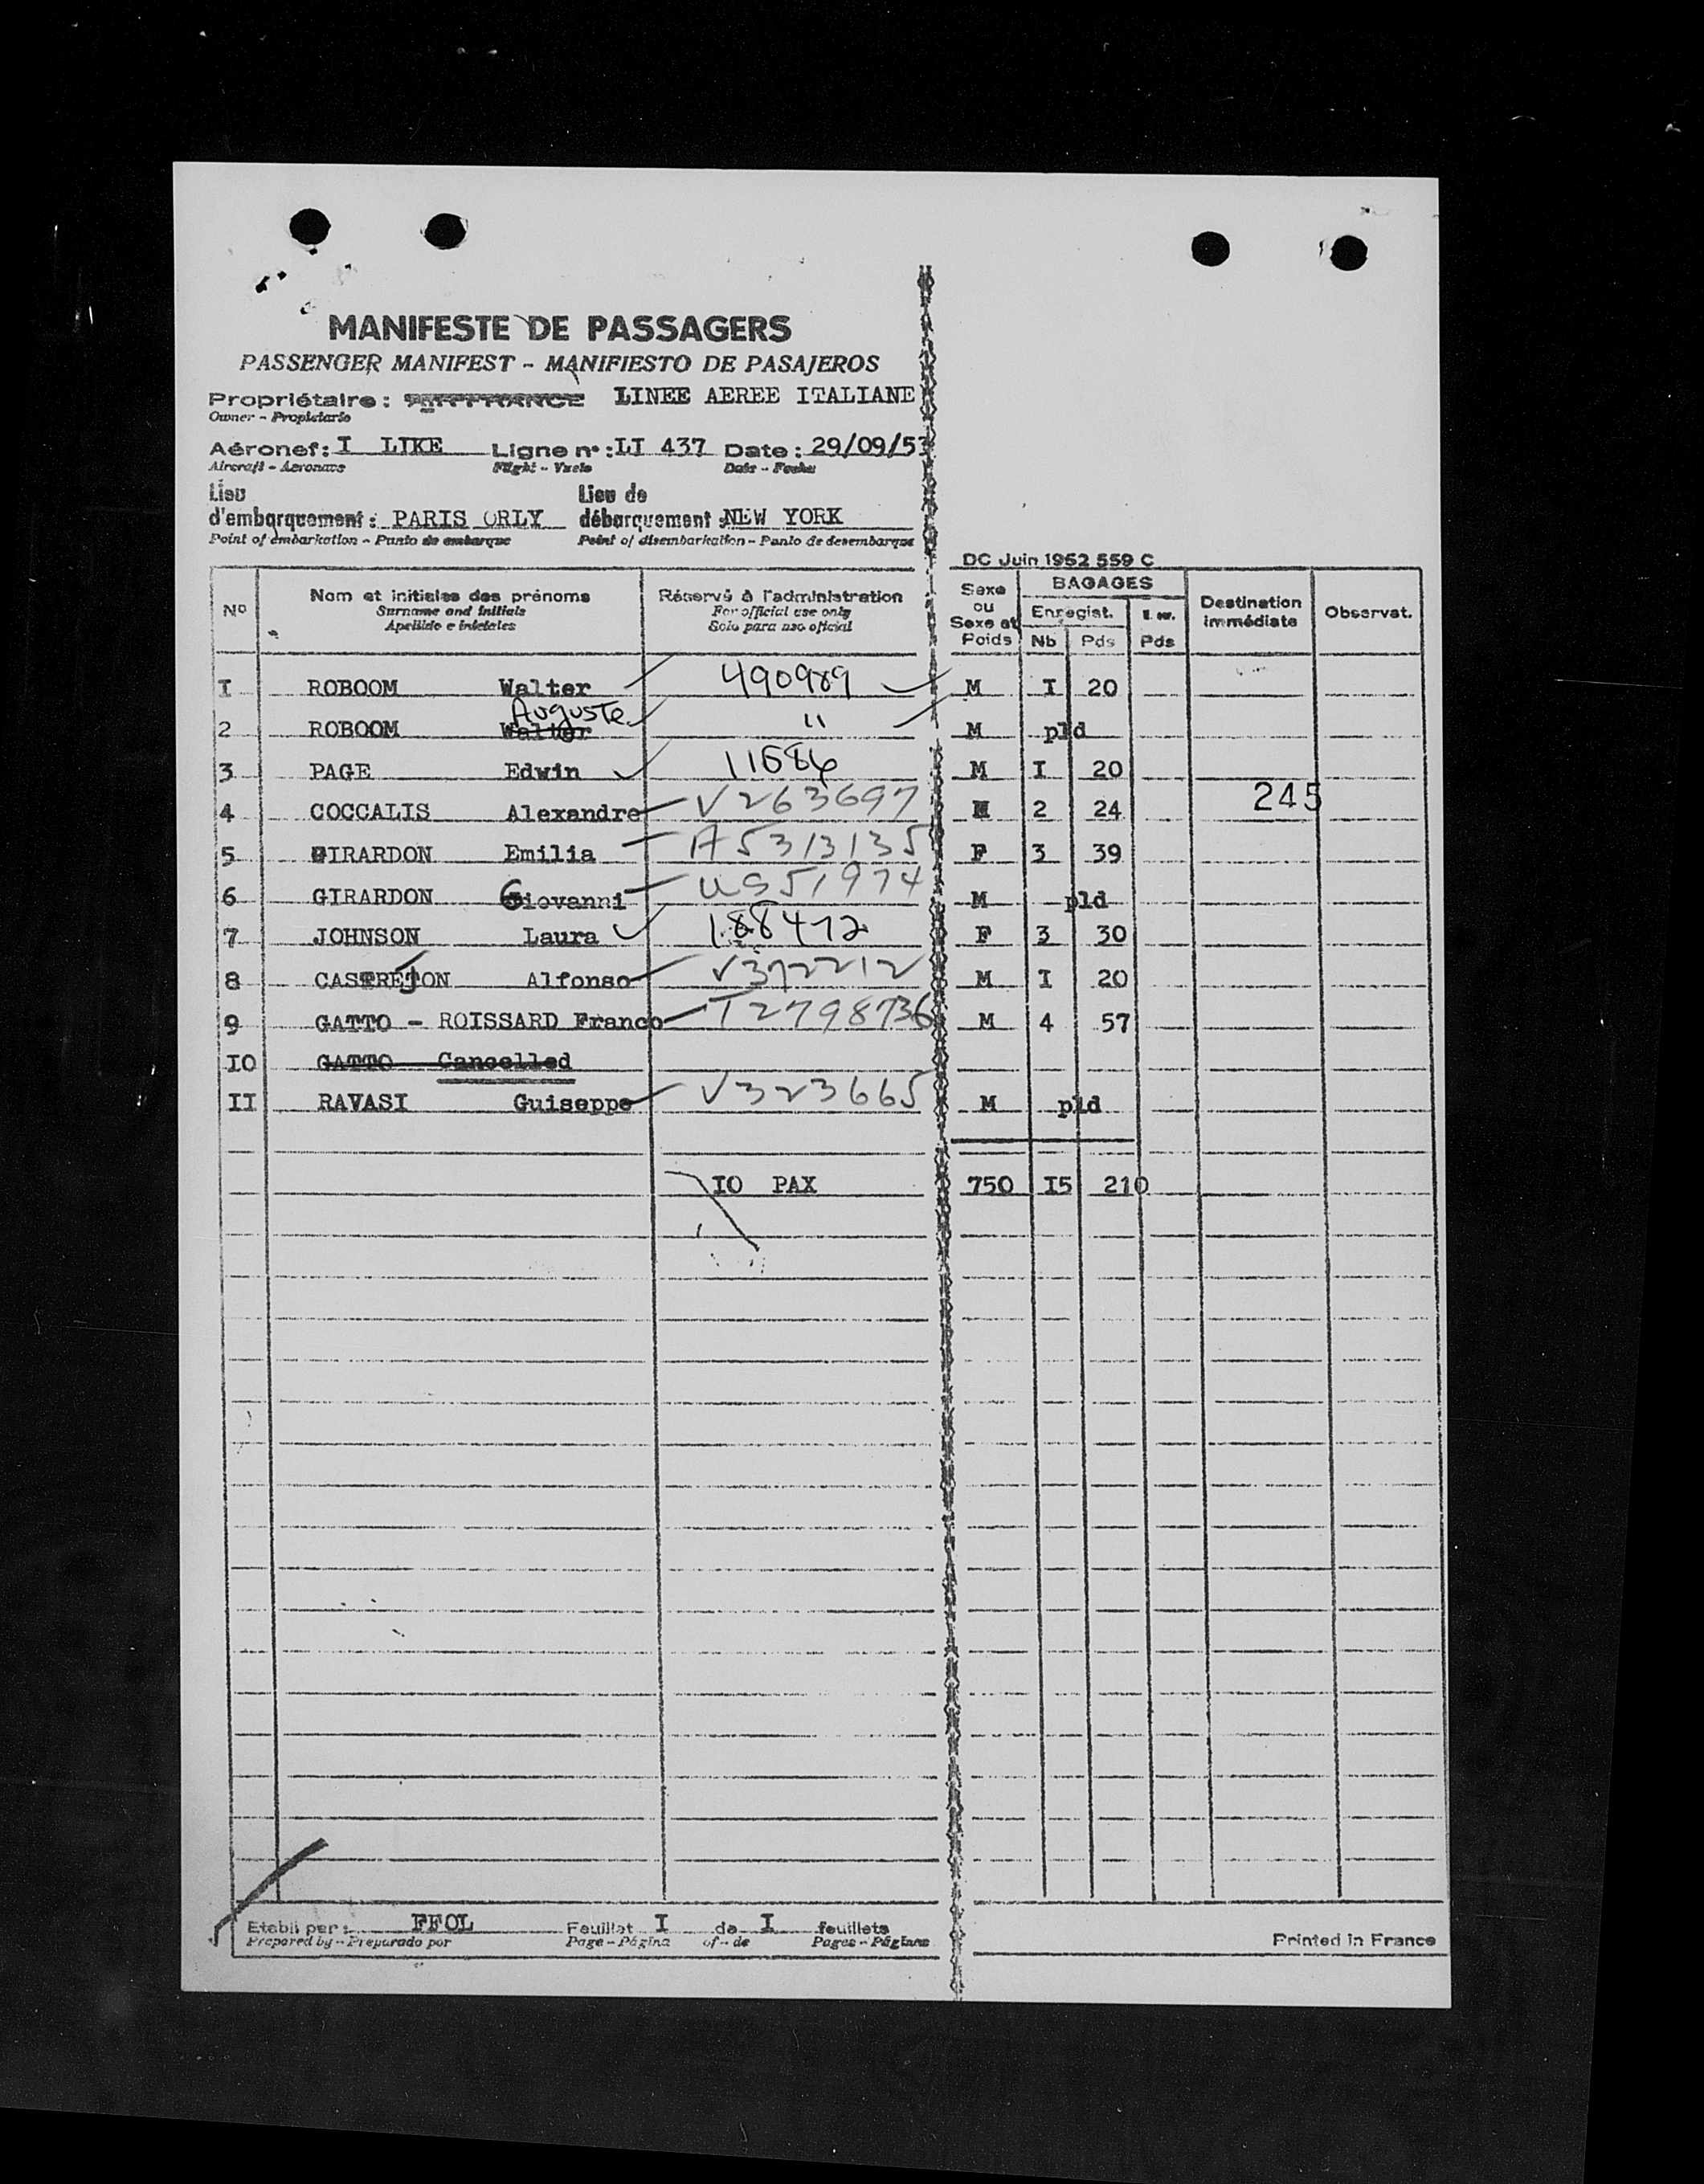 MANIFESTE DE PASSAGERS
PASSENGER MANIFEST - MANIFIESTO DE PASAJEROS
Propriétaire : AIR FRANCE LINEE AEREE ITALIANE
Owner - Propietario
Aéronef : I LIKE Ligne n° : LI 437 Date : 29/09/53
Aircraft - Aeronave Flight - Vuelo Date - Fecha
Lieu d'embarquement : PARIS ORLY Lieu de débarquement : NEW YORK
Point of embarkation - Punto de embarque Point of disembarkation - Punto de desembarque
DC Juin 1952 559 C
N° Nom et initiales des prénoms Réservé à l'administration Sexe ou Sexe et Poids BAGAGES Destination immédiate Observat.
Surname and initials For official use only Enregist.
Apellido e iniciales Solo para uso oficial Nb Pds Pds
I ROBOOM Walter 490989 M I 20
2 ROBOOM Walter Auguste " M pld
3 PAGE Edwin 11686 M I 20
4 COCCALIS Alexandre V263697 M 2 24 245
5 GIRARDON Emilia A5313135 F 3 39
6 GIRARDON Giovanni US51974 M pld
7 JOHNSON Laura 188472 F 3 30
8 CASTREJON Alfonso V372212 M I 20
9 GATTO - ROISSARD Franco T2798736 M 4 57
IO GATTO Cancelled
II RAVASI Guiseppe V323665 M pld
IO PAX 750 I5 210
Etabli par : FFOL Feuillet I de I feuillets
Prepared by - Preparado por Page - Página of - de Pages - Páginas
Printed in France